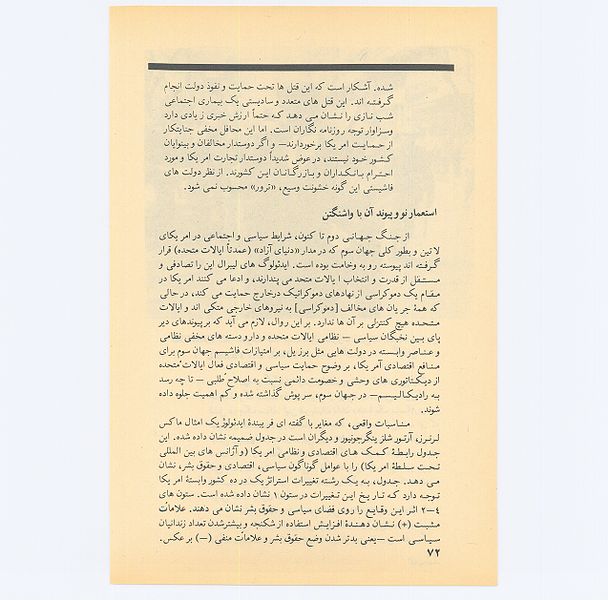 شده. آشکار است که این قتل ها تحت حمایت و نفوذ دولت انجام
گرفته اند. این قتل های متعدد و سادیستی یک بیماری اجتماعی
شب نازی را نشان می دهد که حتماً ارزش خبری زیادی دارد
وسزاوار توجه روزنامه نگاران است. اما این محافل مخفی جنایتکار
از حمایت امریکا برخوردارند— و اگر دوستدار مخالفان و بینوایان
کشور خود نیستند، در عوض شدیداً دوستدار تجارت امریکا و مورد
احترام بانکداران و بازرگانان این کشورند. از نظر دولت های
فاشیستی این گونه خشونت وسیع، «ترور» محسوب نمی شود.
استعمار نو و پیوند آن با واشنگتن
از جنگ جهانی دوم تا کنون، شرایط سیاسی و اجتماعی در امریکای
لاتین و بطور کلی جهان سوم که در مدار «دنیای آزاد» (عمدتاً ایالات متحده) قرار
گرفته اند پیوسته رو به وخامت بوده است. ایدئولوگ های لیبرال این را تصادفی و
مستقل از قدرت و انتخاب ایالات متحد می پندارند، و ادعا می کنند امریکا در
مقام یک دموکراسی از نهادهای دموکراتیک درخارج حمایت می کند، در حالی
که همهٔ جریان های مخالف [دموکراسی] به نیروهای خارجی متکی اند و ایالات
متحده هیچ کنترلی بر آن ها ندارد. بر این روال، لازم می آید که بر پیوندهای دیر
پای بین نخبگان سیاسی — نظامی ایالات متحده و دار و دسته های مخفی نظامی
و عناصر وابسته در دولت هایی مثل برزیل، بر امتیازات فاشیسم جهان سوم برای
منافع اقتصادی آمریکا، بر وضوح حمایت سیاسی و اقتصادی فعال ایالات متحده
از دیکتاتوری های وحشی و خصومت دائمی نسبت به اصلاح طلبی — تا چه رسد
به رادیکالیسم— در جهان سوم، سرپوش گذاشته شده و کم اهمیت جلوه داده
شوند.
مناسبات واقعی، که مغایر با گفته های فریبندهٔ ایدئولوژیک امثال ماکس
لرنرز، آرتور شلز ینگرجونیور و دیگران است در جدول ضمیمه نشان داده شده. این
جدول رابطهٔ کمک های اقتصادی و نظامی امریکا (و آژانس های بین المللی
تحت سلطهٔ امریکا) را با عوامل گوناگون سیاسی، اقتصادی و حقوق بشر، نشان
می دهد. جدول، به یک رشته تغییرات استراتژیک در ده کشور وابستهٔ امریکا
توجه دارد که تاریخ این تغییرات در ستون ۱ نشان داده شده است. ستون های
۴—۲ اثر این وقایع را روی فضای سیاسی و حقوق بشر نشان می دهند. علامات
مثبت (+) نشان دهندهٔ افزایش استفاده از شکنجه و بیشترشدن تعداد زندانیان
سیاسی است —یعنی بدتر شدن وضع حقوق بشر و علامات منفی (—) بر عکس.
۷۲